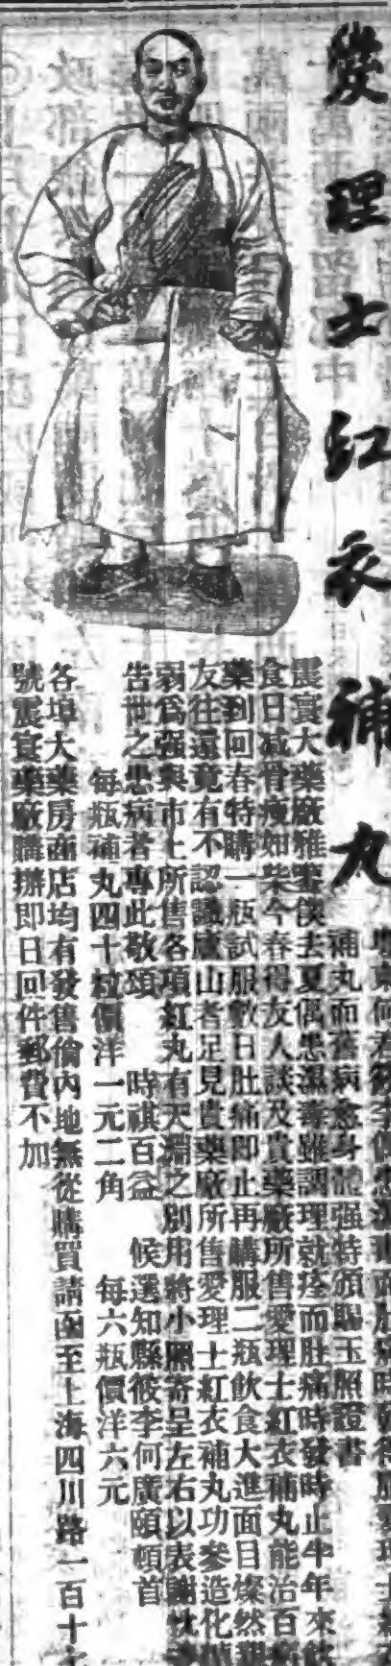 愛理士紅衣補丸
補丸而舊病愈身體强特頒賜玉照證書
震寰大藥廠雅鑒僕去夏偶患濕毒雖調理就痊而肚痛時發時止半年來飲
食日减骨瘦如柴今春得友人談及貴藥廠所售愛理士紅衣補丸能治百病
藥到回春特購一瓶試服數日肚痛即止再購服二瓶飲食大進面目燦然親
友往還竟有不認識廬山者足見貴藥廠所售愛理士紅衣補丸功參造化
弱爲强與市上所售各項紅丸有天淵之別用將小照寄呈左右以表謝忱
告世之患病者專此敬頌 時祺百益 候選知縣筱李何廣頤頓首
每瓶補丸四十粒價洋一元二角 每六瓶價洋六元
各埠大藥房商店均有發售倘內地無從購買請函至上海四川路一百十七
號震寰藥廠購辦即日回件郵費不加